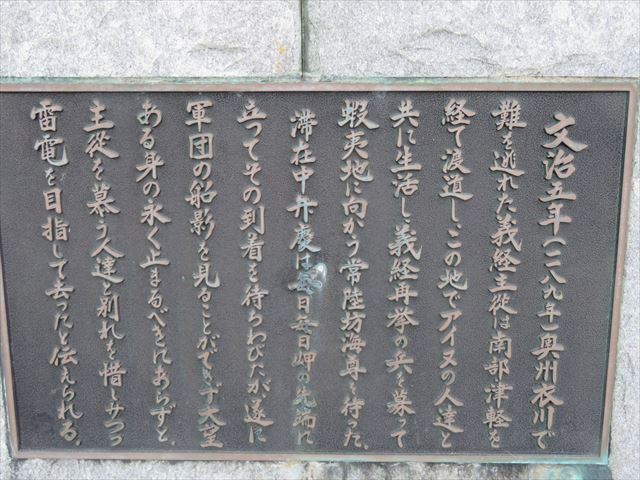 文治五年(一一八九年)奥州衣川で
難を逃れた義経主従は南部津軽を
経て渡道し、この地でアイヌの人達と
共に生活し義経再挙の兵を募って
蝦夷地に向かう常陸坊海尊を待った。
滞在中弁慶は毎日毎日岬の先端に
立ってその到着を待ちわびたが遂に
軍団の船影を見ることができず大望
ある身の永く止まるべきにあらずと、
主従を慕う人達と別れを惜しみつつ
雷電を目指して去ったと伝えられる。